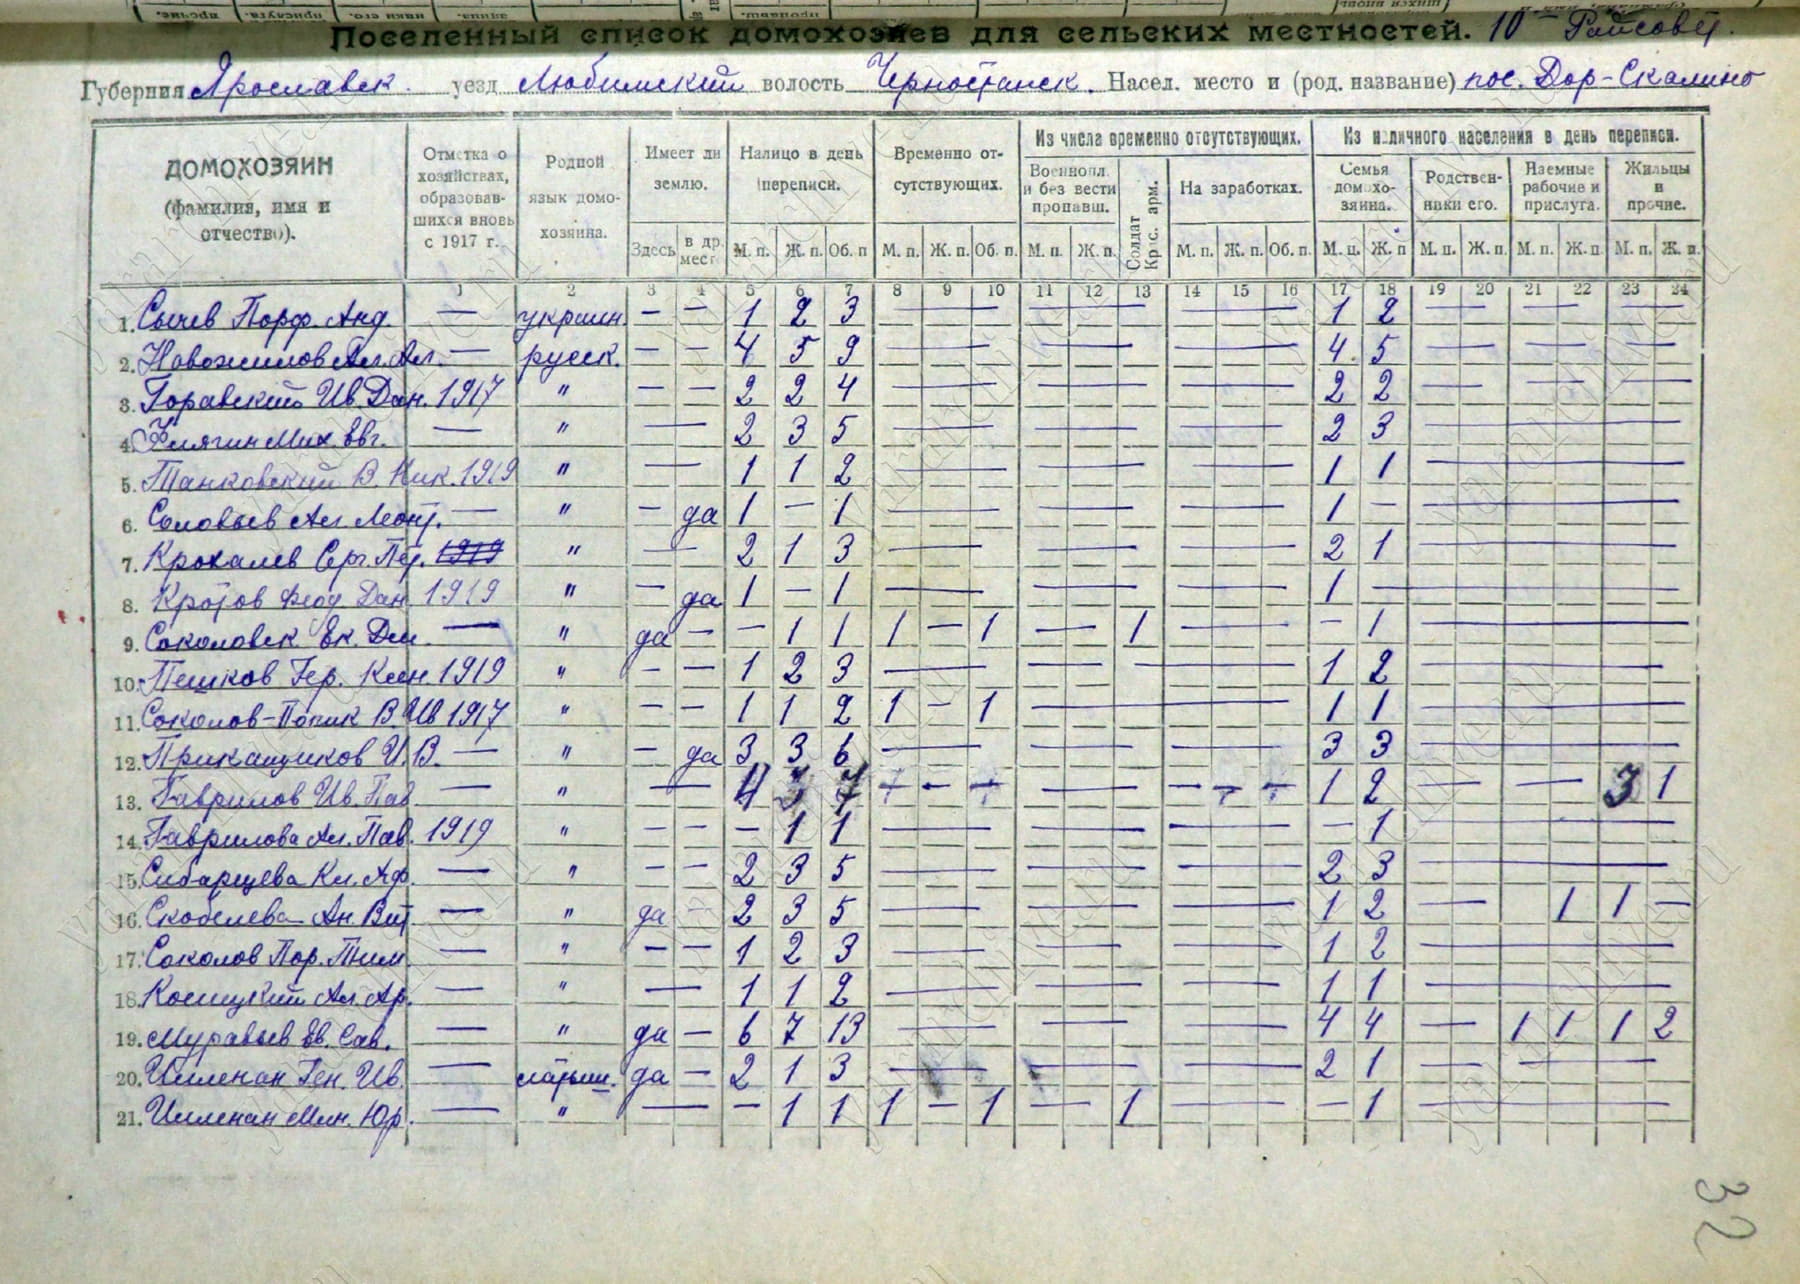 Поселенный список домохозяев для сельских местностей. 10
Губерния Ярославск. уезд Любимский волость Черностанск. Насел. место и (род. название) пос. Дор-Скалино
ДОМОХОЗЯИН (фамилия, имя и отчество). Отметка о хозяйствах, образовавшихся вновь с 1917 г. Родной язык домохозяина. Имеет ли землю. Налицо в день переписи. Временно отсутствующих. Из числа временно отсутствующих. Из наличного населения в день переписи.
Военнопл. и без вести пропавш. Солдат Крас. арм. На заработках. Семья домохозяина. Родственники его. Наемные рабочие и прислуга. Жильцы и прочие.
Здесь в др. мест. М. п. Ж. п. Об. п М. п. Ж. п. Об. п. М. п. Ж. п. М. п. Ж. п. Об. п. М. п. Ж. п М. п. Ж. п. М. п. Ж. п. М. п. Ж. п.
1 2 3 4 5 6 7 8 9 10 11 12 13 14 15 16 17 18 19 20 21 22 23 24
1. Сычев Порф. Анд. — украин. — — 1 2 3 — — — 1 2 — — — —
2. Новожилов Ал. Ал. — русск. — — 4 5 9 — — — 4 5 — — — — —
3. Горавский Ив. Дан. 1917 " — — 2 2 4 — — — 2 2 — — — — —
4. Мих. Евг. — " — 2 3 5 — — — 2 3 —
5. Танковский В. Ник. 1919 " — 1 1 2 — — — 1 1 —
6. Соловьев Ал. Леонт. — " — да 1 — 1 — — — 1 — —
7. Крохалев Серг. Пет. 1919 " — 2 1 3 — — — 2 1 —
8. Кротов Феод. Дан. 1919 " — да 1 — 1 — — — 1 —
9. Соколовск. Ек. Дм. — " да — — 1 1 1 — 1 — 1 — — 1 —
10. Пешков Гер. 1919 " — — 1 2 3 — — — 1 2 —
11. Соколов-Попик В. Ив 1917 " — — 1 1 2 1 — 1 — — 1 1 —
12. Приказчиков И. В. — " — да 3 3 6 — — — 3 3 —
13. Гаврилов Ив. Пав — " — 4 3 7 — — — 1 2 — — 3 1
14. Гаврилова Ал. Пав. 1919 " — — — 1 1 — — — — 1 —
15. Кл. Аф. — " — — 2 3 5 — — — 2 3 —
16. Скобелева Ан. Вит — " да — 2 3 5 — — — 1 2 — 1 1 —
17. Соколов Пор. Тим. — " — — 1 2 3 — — — 1 2 —
18. Косицкий Ал. Ар. — " — 1 1 2 — — — 1 1 —
19. Муравьев Ев. Сав. — " да — 6 7 13 — — — 4 4 — 1 1 1 2
20. Ген. Ив. — латыш. да — 2 1 3 — — — 2 1 — — —
21. Юр. — " — — 1 1 1 — 1 — 1 — — 1 —
32